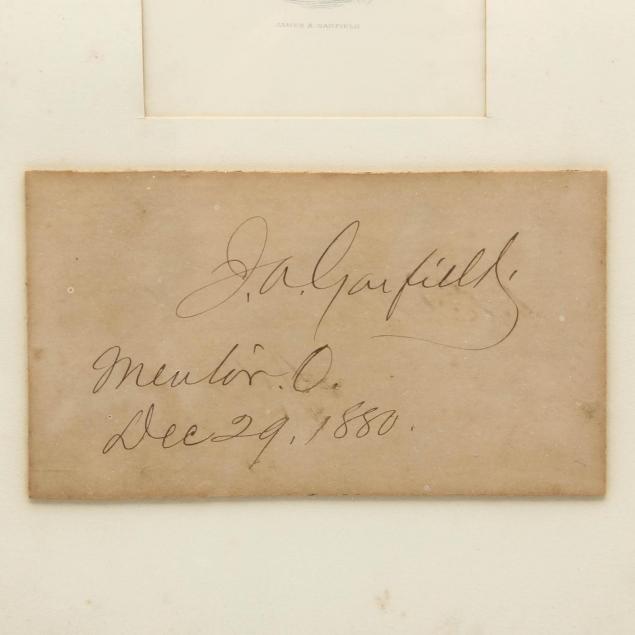 JAMES A. GARFIELD
J. A. Garfield.
Mentor. O.
Dec 29, 1880.